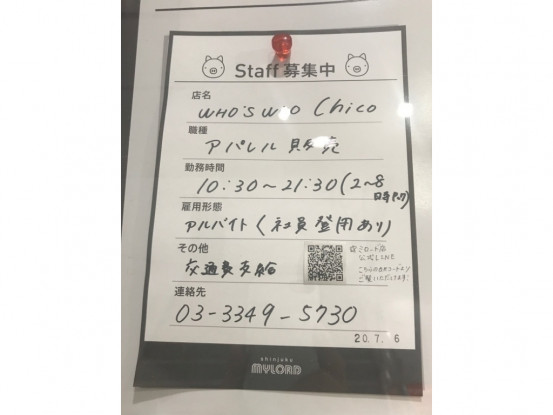 Staff 募集中
店名
WHO'S WHO Chico
職種
アパレル 販売
勤務時間
10:30〜21:30(2〜8
雇用形態
アルバイト(社員登用あり)
その他
交通費支給
公式LINE
こちらのQRコードより
ご覧いただけます!
連絡先
03-3349-5730
20.7.6
shinjuku
MYLORD